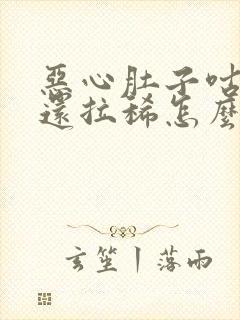 惡心肚子咕
還拉稀怎麼
玄笙丨落雨